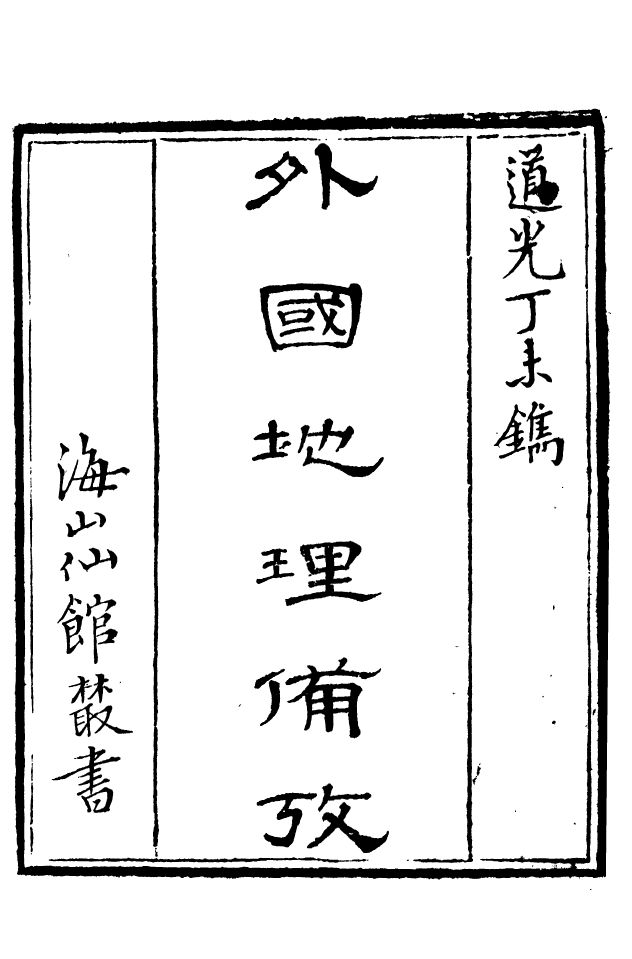 道光丁未鐫
外國地理備攷
海山仙館叢書